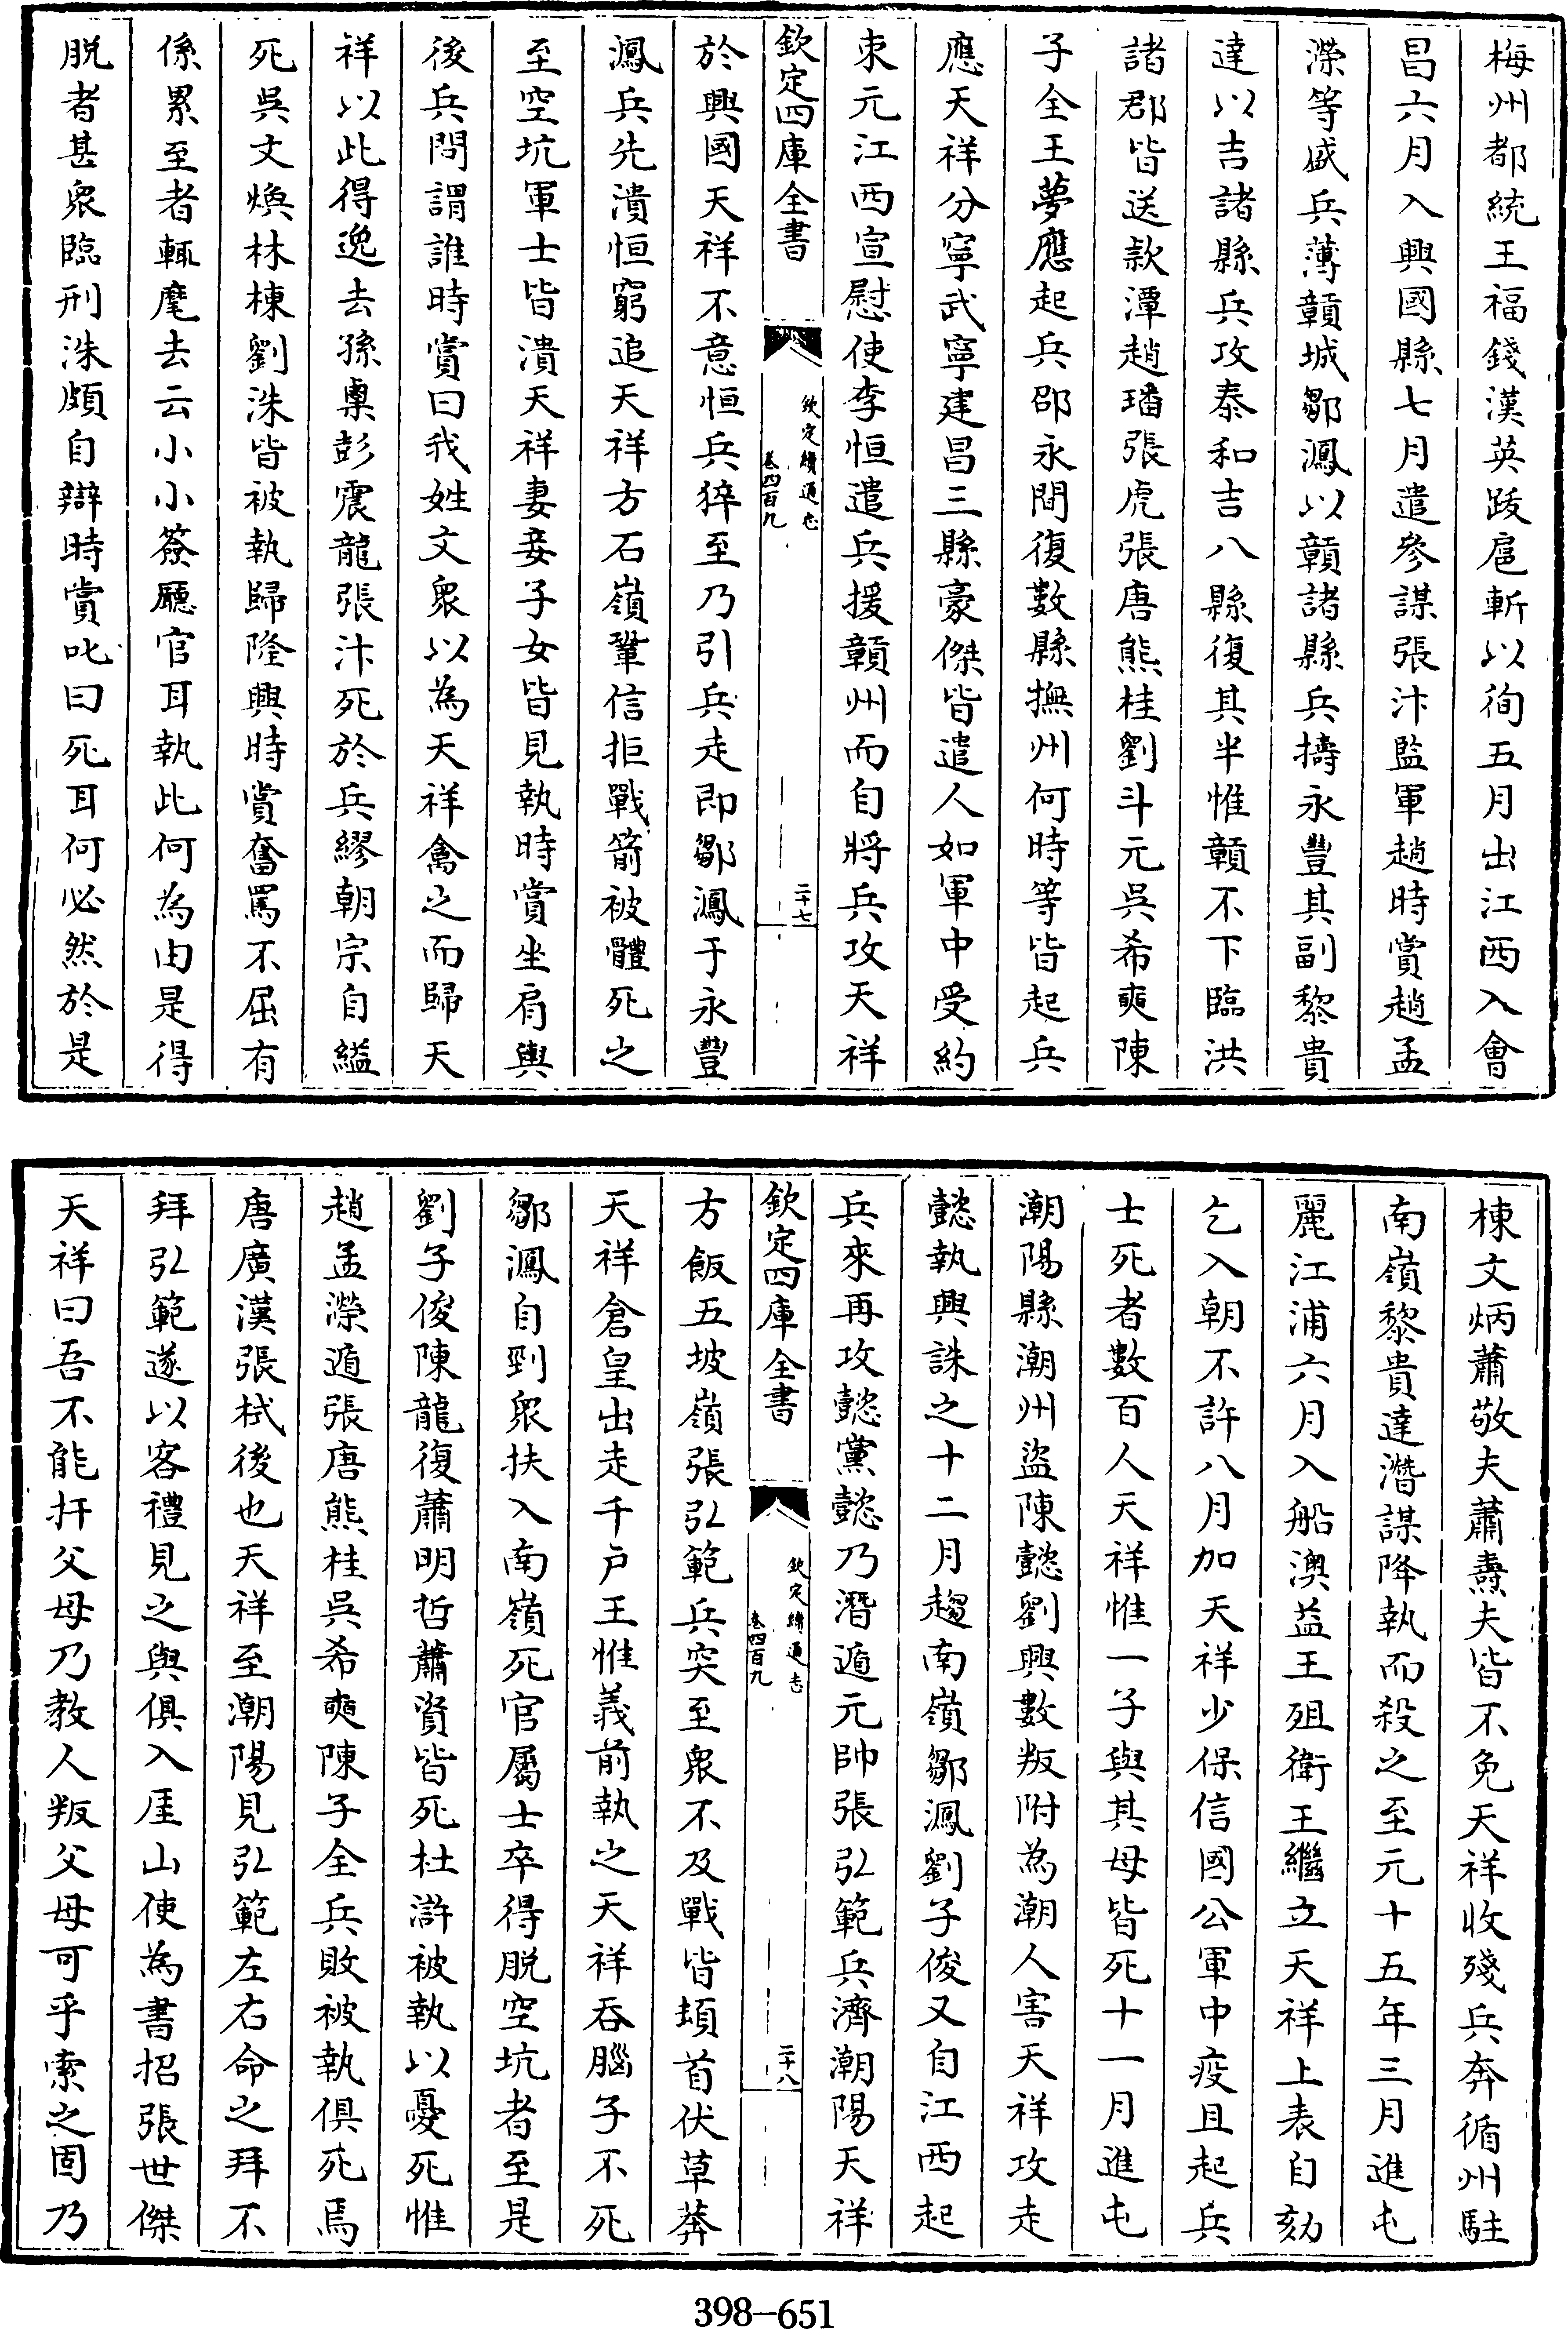 梅州都統王福錢漢英跋扈斬以徇五月出江西入會
昌六月入興國縣七月遣參謀張汴監軍趙時賞趙孟
濚等盛兵薄贛城鄒㵯以贛諸縣兵擣永豐其副黎貴
達以吉諸縣兵攻泰和吉八縣復其半惟贛不下臨洪
諸郡皆送款潭趙璠張虎張唐熊桂劉斗元吳希奭陳
子全王夢應起兵邵永間復數縣撫州何時等皆起兵
應天祥分寧武寧建昌三縣豪傑皆遣人如軍中受約
束元江西宣慰使李恒遣兵援贛州而自將兵攻天祥
欽定四庫全書
欽定續通志
卷四百九
二十七
於興國天祥不意恒兵猝至乃引兵走即鄒㵯于永豐
㵯兵先潰恒窮追天祥方石嶺鞏信拒戰箭被體死之
至空坑軍士皆潰天祥妻妾子女皆見執時賞坐肩輿
後兵問謂誰時賞曰我姓文衆以為天祥禽之而歸天
祥以此得逸去孫㮚彭震龍張汴死於兵繆朝宗自縊
死吳文煥林棟劉洙皆被執歸隆興時賞奮罵不屈有
係累至者輒麾去云小小簽廳官耳執此何為由是得
脫者甚衆臨刑洙頗自辯時賞叱曰死耳何必然於是
棟文炳蕭敬夫蕭燾夫皆不免天祥收殘兵奔循州駐
南嶺黎貴達潛謀降執而殺之至元十五年三月進屯
麗江浦六月入船澳益王殂衛王繼立天祥上表自劾
乞入朝不許八月加天祥少保信國公軍中疫且起兵
士死者數百人天祥惟一子與其母皆死十一月進屯
潮陽縣潮州盜陳懿劉興數叛附為潮人害天祥攻走
懿執興誅之十二月趨南嶺鄒㵯劉子俊又自江西起
兵來再攻懿黨懿乃潛遁元帥張弘範兵濟潮陽天祥
欽定四庫全書
欽定續通志
卷四百九
二十八
方飯五坡嶺張弘範兵突至衆不及戰皆頓首伏草莽
天祥倉皇出走千戶王惟義前執之天祥吞腦子不死
鄒㵯自剄衆扶入南嶺死官屬士卒得脫空坑者至是
劉子俊陳龍復蕭明哲蕭資皆死杜滸被執以憂死惟
趙孟濚遁張唐熊桂吳希奭陳子全兵敗被執俱死焉
唐廣漢張栻後也天祥至潮陽見弘範左右命之拜不
拜弘範遂以客禮見之與俱入厓山使為書招張世傑
天祥曰吾不能扞父母乃教人叛父母可乎索之固乃
398-651